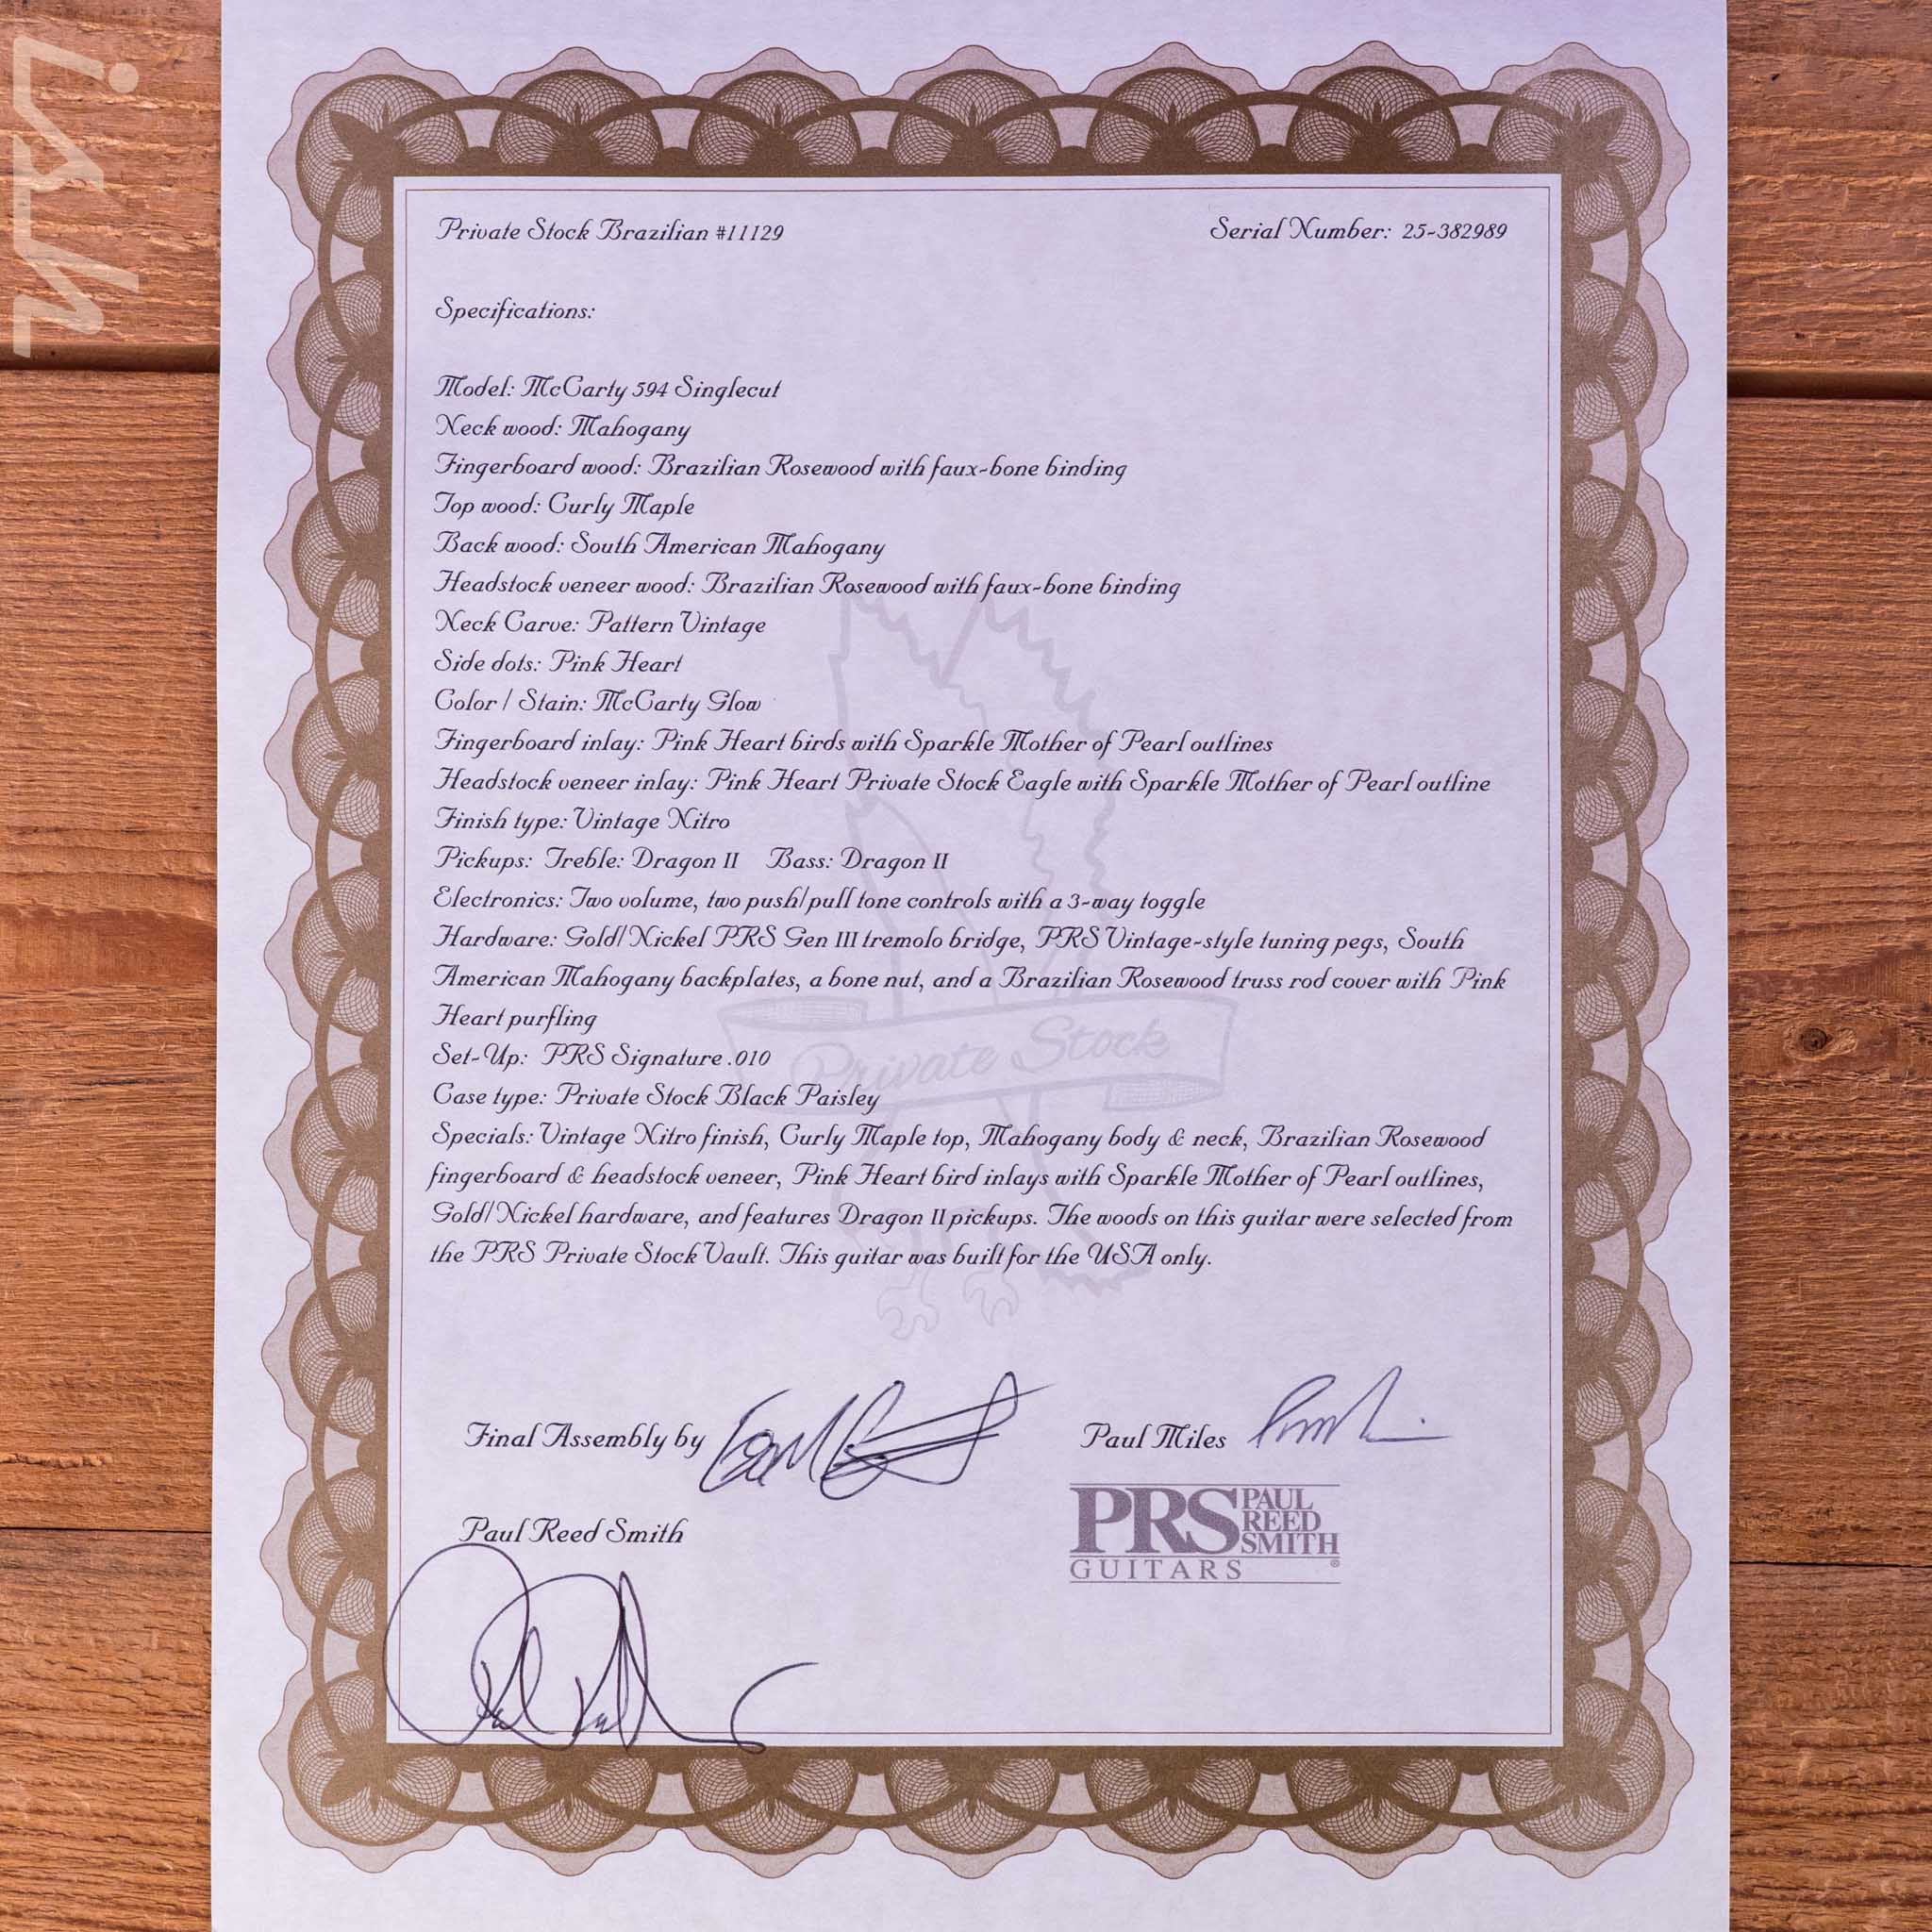 ish
Private Stock Brazilian #11129
Serial Number: 25-382989
Specifications:
Model: McCarty 594 Singlecut
Neck wood: Mahogany
Fingerboard wood: Brazilian Rosewood with faux-bone binding
Top wood: Curly Maple
Back wood: South American Mahogany
Headstock veneer wood: Brazilian Rosewood with faux-bone binding
Neck Carve: Pattern Vintage
Side dots: Pink Heart
Color / Stain: McCarty Glow
Fingerboard inlay: Pink Heart birds with Sparkle Mother of Pearl outlines
Headstock veneer inlay: Pink Heart Private Stock Eagle with Sparkle Mother of Pearl outline
Finish type: Vintage Nitro
Pickups: Treble: Dragon II Bass: Dragon II
Electronics: Two volume, two push/pull tone controls with a 3-way toggle
Hardware: Gold/Nickel PRS Gen III tremolo bridge, PRS Vintage-style tuning pegs, South
American Mahogany backplates, a bone nut, and a Brazilian Rosewood truss rod cover with Pink
Heart purfling
Set-Up: PRS Signature .010
Case type: Private Stock Black Paisley
Specials: Vintage Nitro finish, Curly Maple top, Mahogany body & neck, Brazilian Rosewood
fingerboard & headstock veneer, Pink Heart bird inlays with Sparkle Mother of Pearl outlines,
Gold/Nickel hardware, and features Dragon II pickups. The woods on this guitar were selected from
the PRS Private Stock Vault. This guitar was built for the USA only.
Private Stock
Final Assembly by
Paul Miles
Paul Reed Smith
PRS PAUL REED SMITH
GUITARS ®